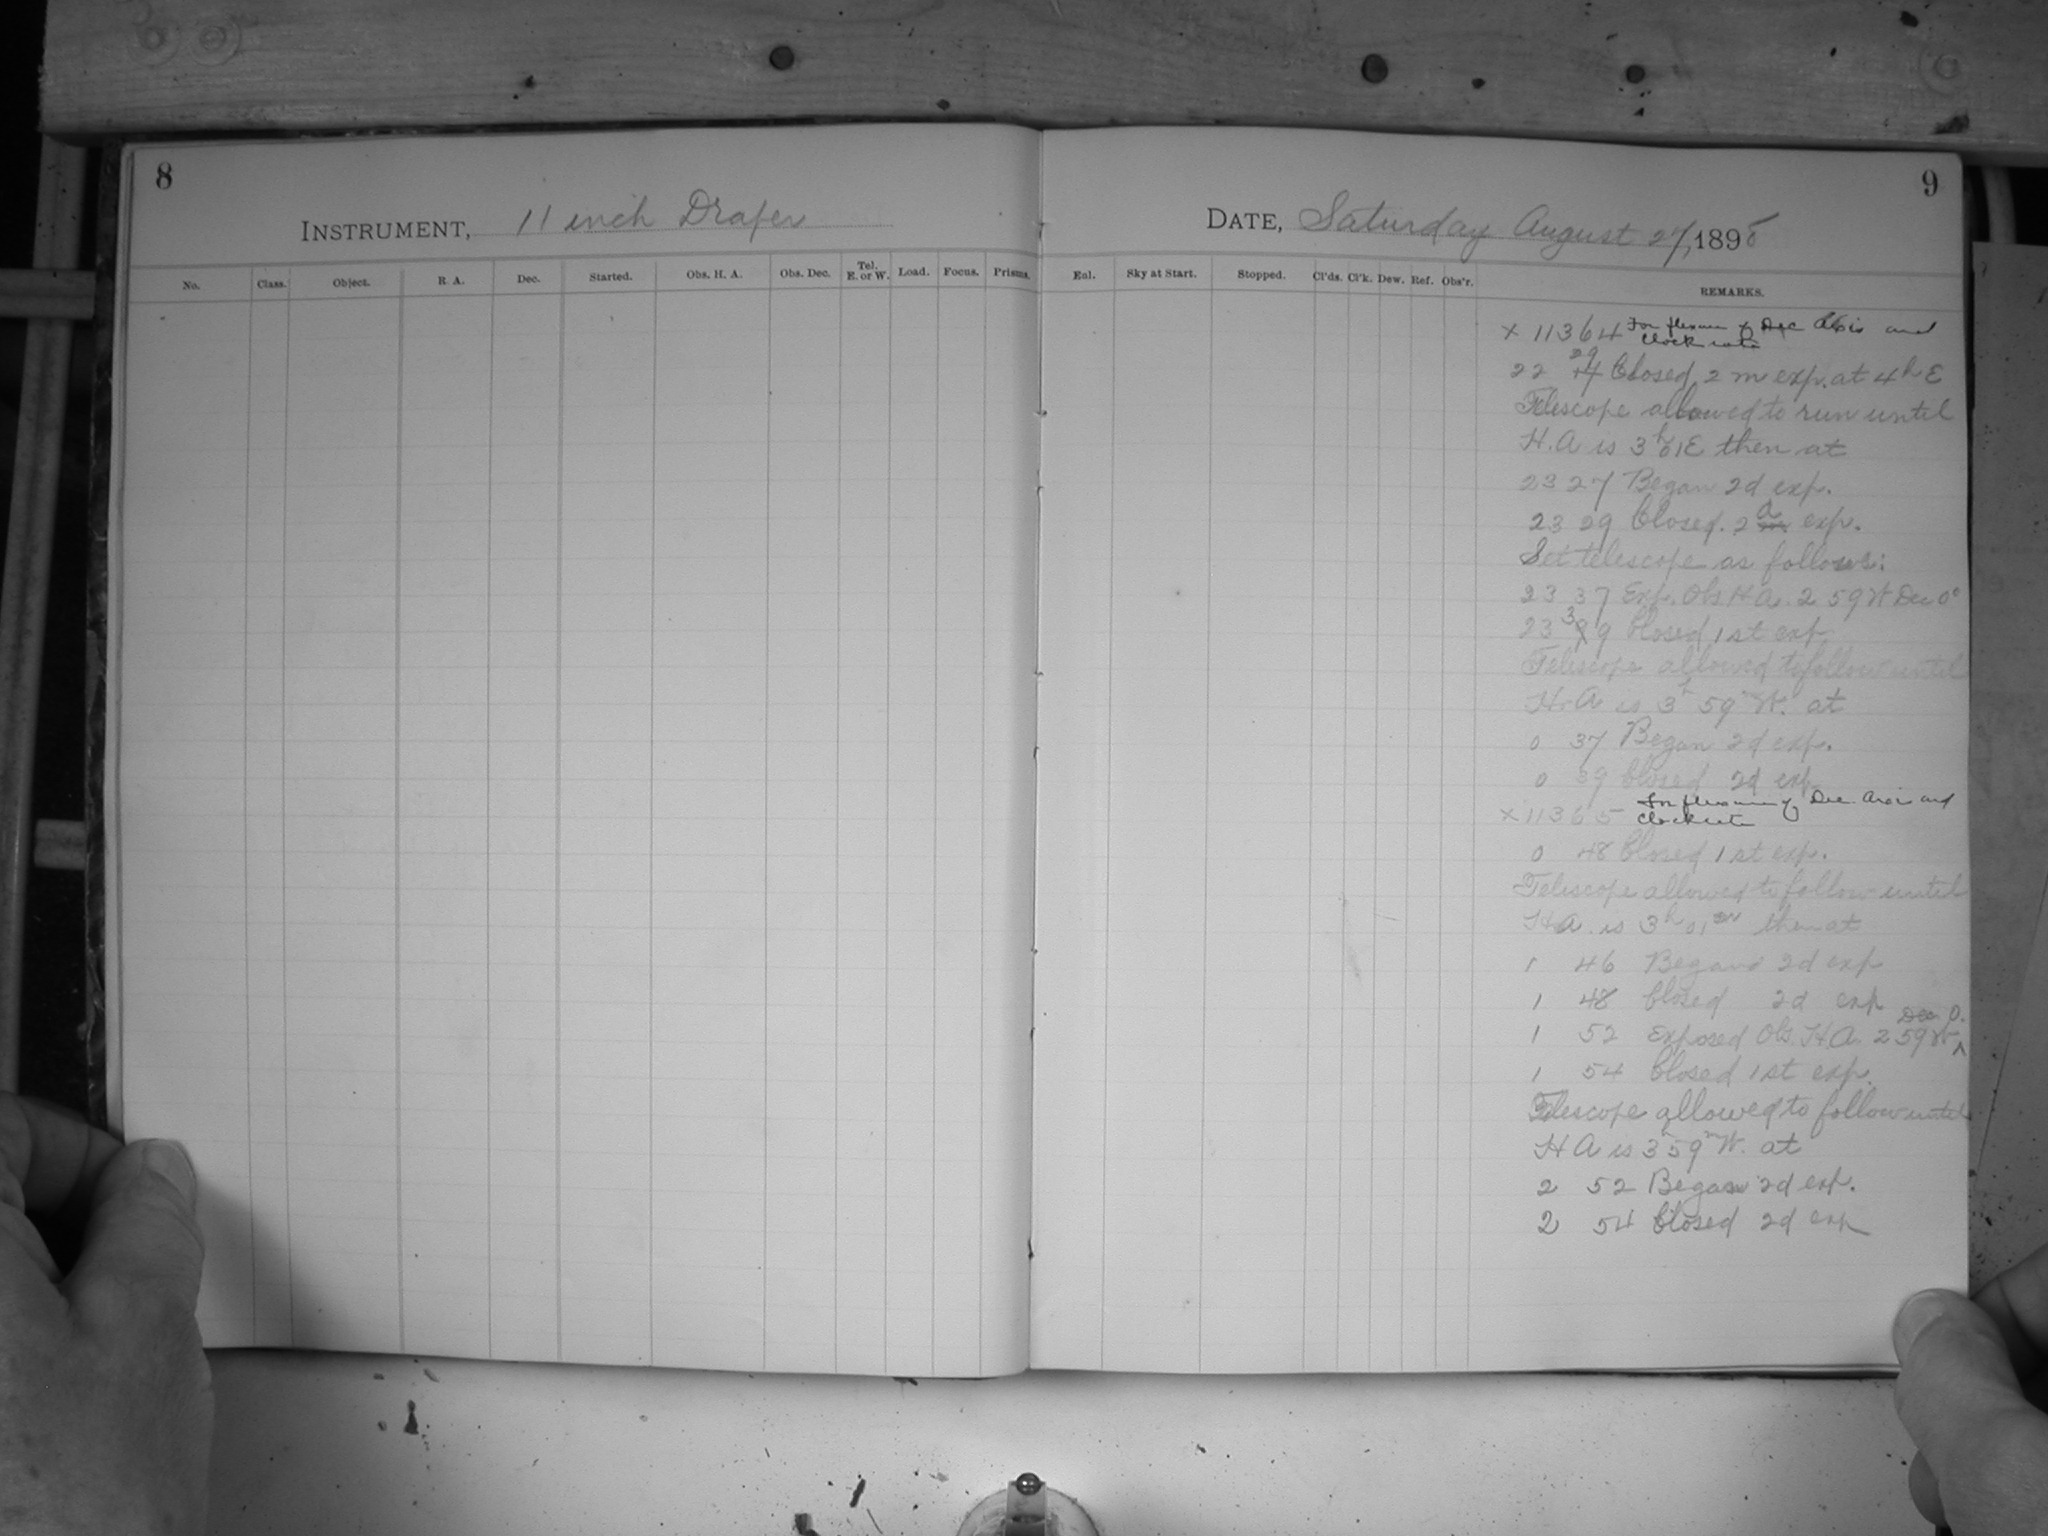 8
9
INSTRUMENT, 11 inch Draper
DATE, Saturday August 27, 1898
No. Class. Object. R. A. Dec. Started. Obs. H. A. Obs. Dec. Tel. E. or W. Load. Focus. Prisms.
Eol. Sky at Start. Stopped. Cl'ds. Cl'k. Dew. Ref. Obs'r. REMARKS.
x 11364 For flexure of Dec Axis and
clock rate
22 29 Closed 2 m exp. at 4h E
Telescope allowed to run until
H. A is 3h 01 E then at
23 27 Began 2d exp.
23 29 Closed. 2d exp.
Set telescope as follows:
23 37 Exp. Obs H A. 2 59 W Dec 0°
23 39 Closed 1st exp
Telescope allowed to follow until
H. A is 3h 59m W. at
0 37 Began 2d exp.
0 39 Closed 2d exp
x 11365 For flexure of Dec. Axis and
clock rate
0 48 Closed 1st exp.
Telescope allowed to follow until
H A. is 3h 01 then at
1 46 Began 2d exp
1 48 Closed 2d exp
1 52 Exposed Obs. H. A. 2 59 W Dec 0.
1 54 Closed 1st exp.
Telescope allowed to follow until
H A is 3h 59m W. at
2 52 Began 2d exp.
2 54 Closed 2d exp